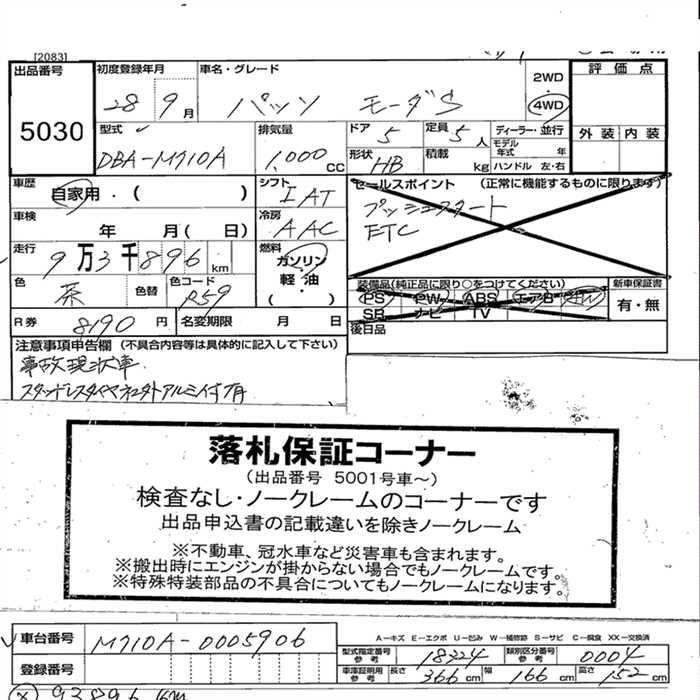 [2083]
出品番号 5030
初度登録年月 28 9月
車名・グレード パッソ モーダS
2WD
4WD
評価点
外装 内装
型式 DBA-M710A
排気量 1,000 CC
ドア 5
定員 5人
ディーラー・並行
モデル年式 年
形状 HB
積載 kg
ハンドル 左・右
車歴 自家用・( )
シフト IAT
セールスポイント (正常に機能するものに限ります)
プッシュスタート
ETC
車検 年 月( 日)
冷房 AAC
走行 9万3千896km
燃料 ガソリン 軽油 (・)
色 茶 色替
色コード R59
装備品(純正品に限り○をつけてください)
PS PW ABS エアB AW
SR ナビ TV
新車保証書 有・無
R券 8190円
名変期限 月 日
後日品
注意事項申告欄 (不具合内容等は具体的に記入して下さい)
事故現状車
スタッドレスタイヤ
アルミ付有
落札保証コーナー
(出品番号 5001号車~)
検査なし・ノークレームのコーナーです
出品申込書の記載違いを除きノークレーム
※不動車、冠水車など災害車も含まれます。
※搬出時にエンジンが掛からない場合でもノークレームです。
※特殊特装部品の不具合についてもノークレームになります。
車台番号 M710A-0005906
A―キズ E―エクボ U―凹み W―補修跡 S―サビ C―腐食 XX―交換済
登録番号
型式指定番号 参考 18324
類別区分番号 参考 0004
車庫証明用 参考 長さ 366cm 幅 166cm 高さ 152cm
93896 km